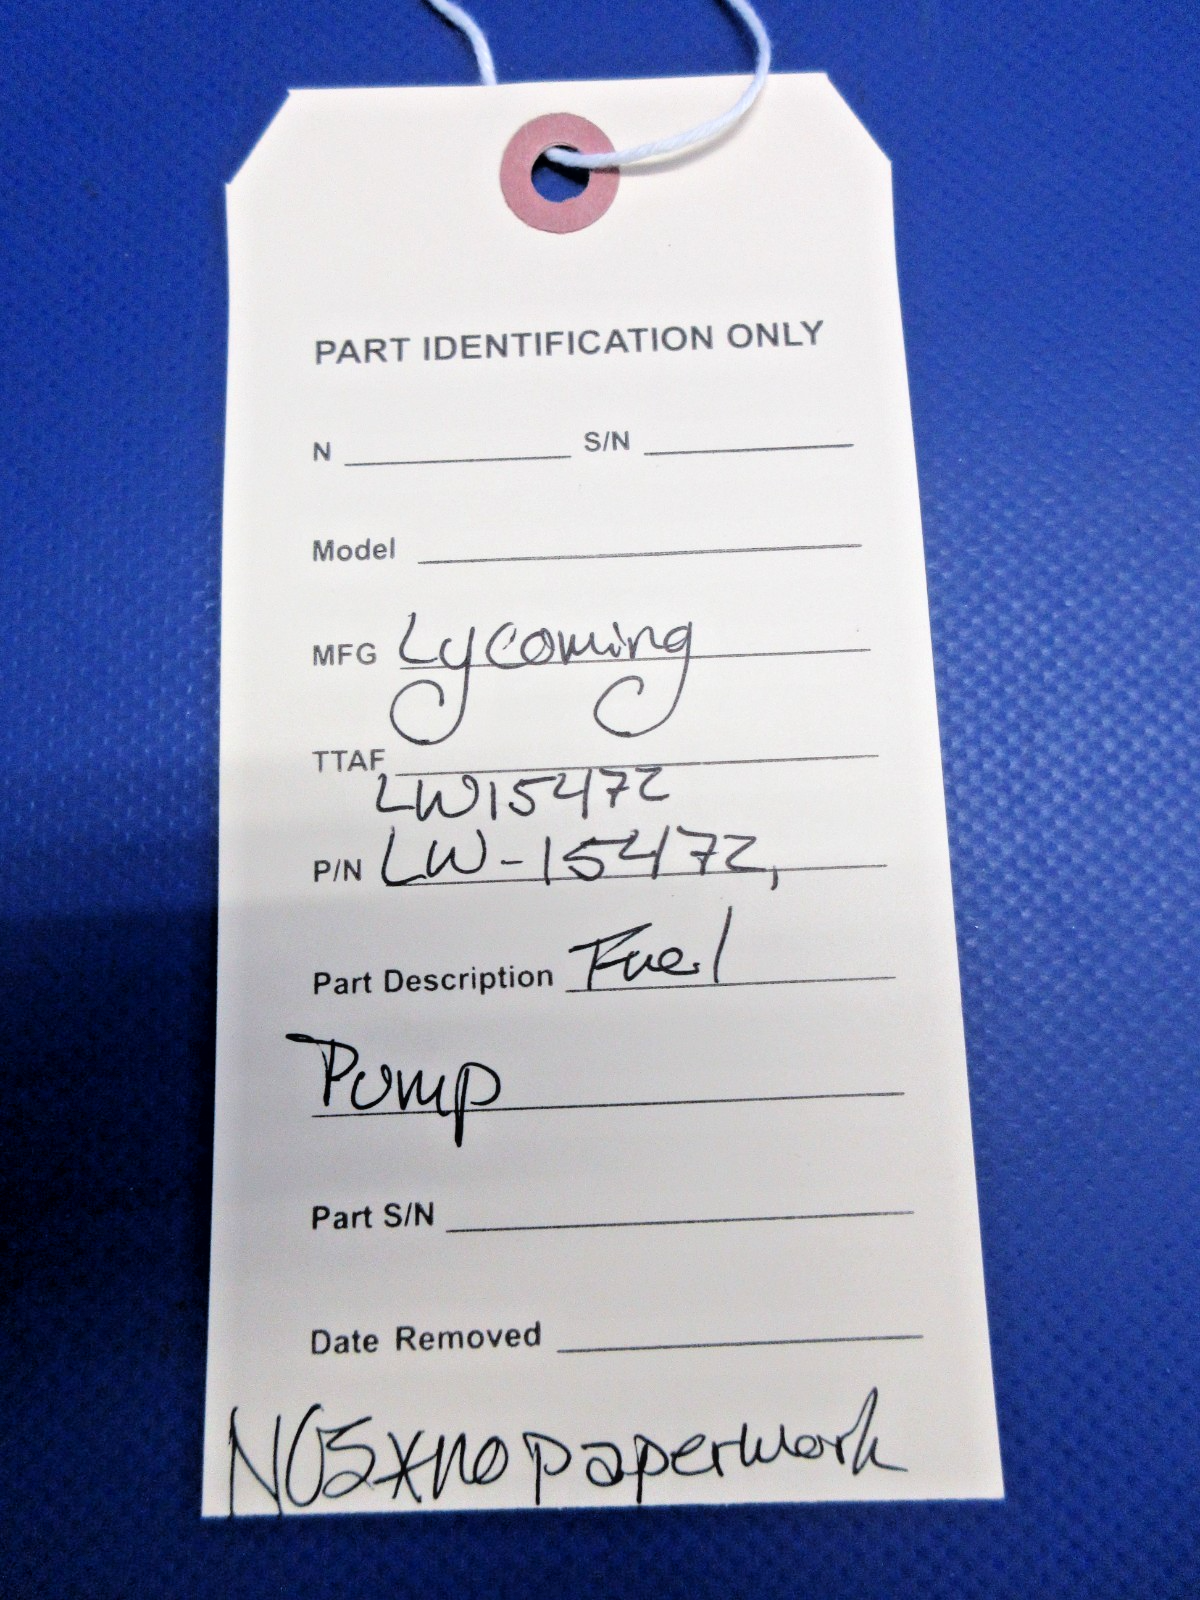 PART IDENTIFICATION ONLY
N S/N
Model
MFG Lycoming
TTAF
LW15472
P/N LW-15472,
Part Description Fuel
Pump
Part S/N
Date Removed
NOS*no paperwork